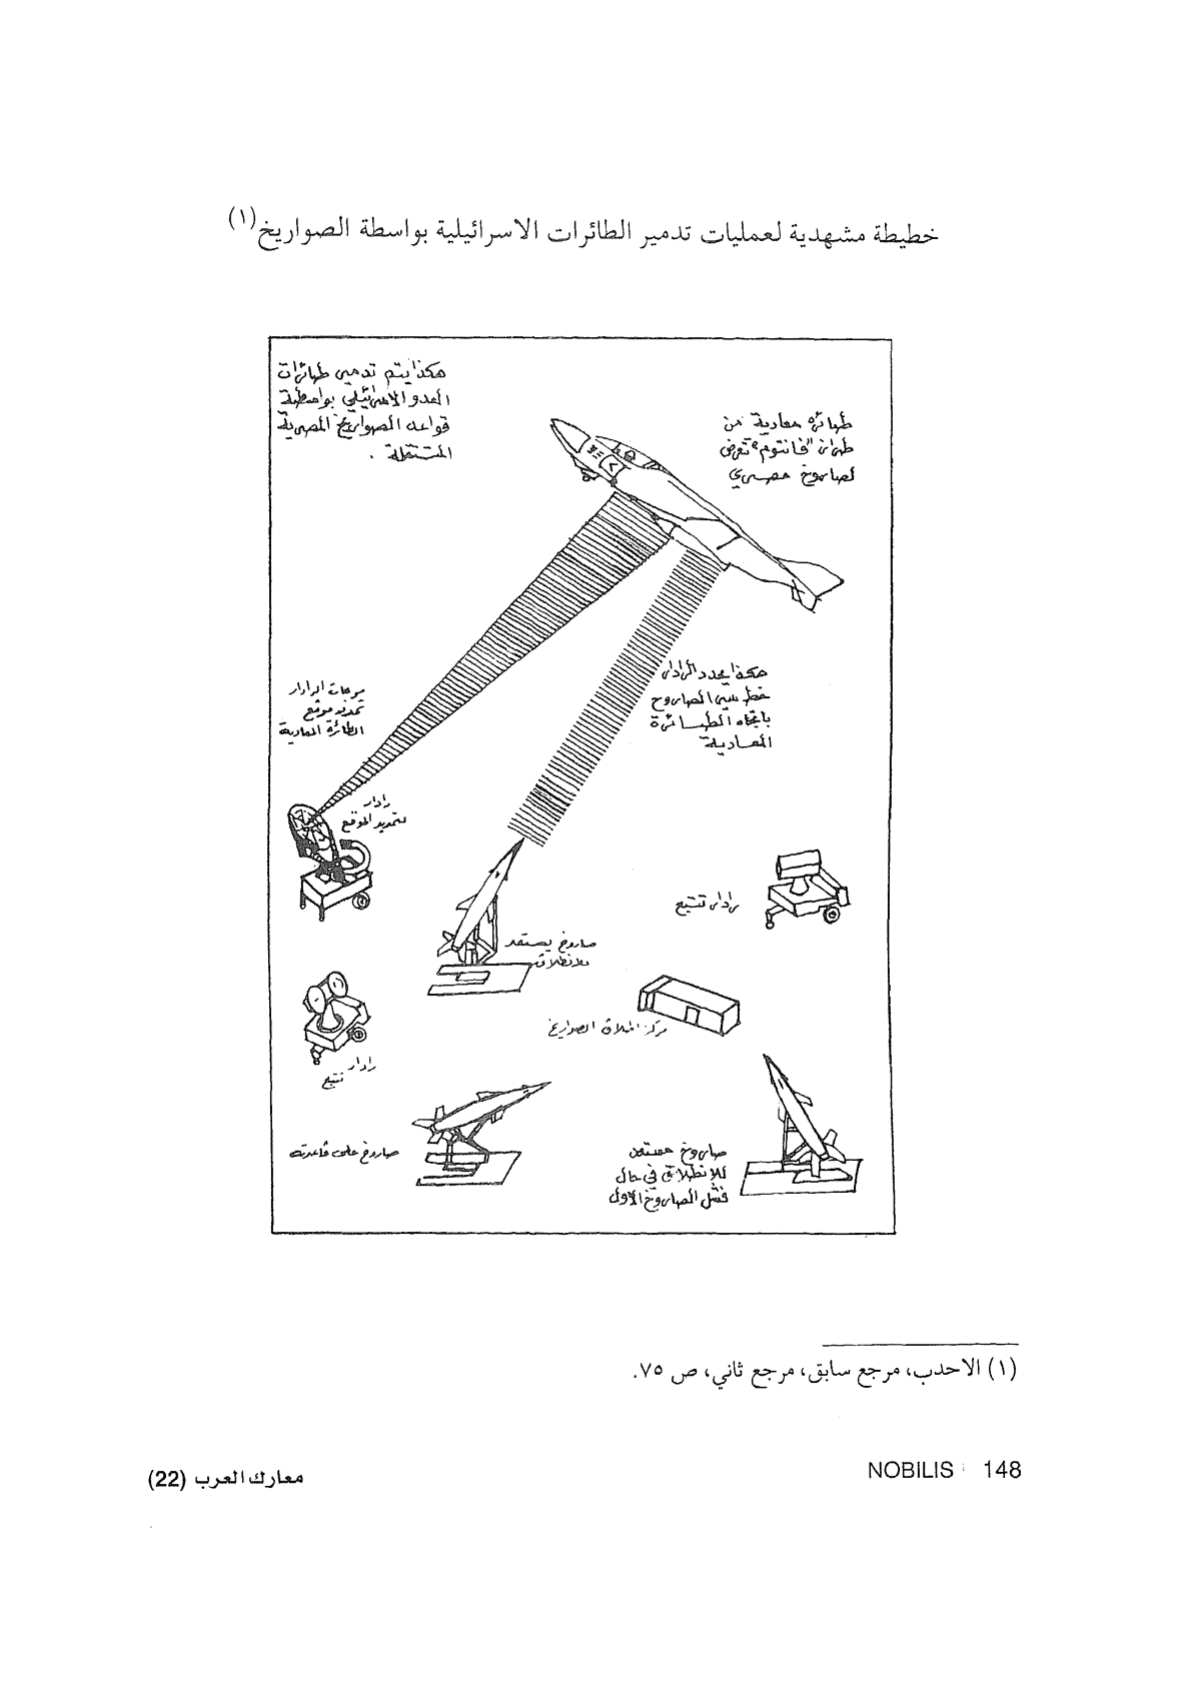 خطيطة مشهدية لعمليات تدمير الطائرات الاسرائيلية بواسطة الصواريخ(١)
هكذا يتم تدمير طائرات
العدو الاسرائيلي بواسطة
قواعد الصواريخ المصرية
المتنقلة .
طائرة معادية من
طراز "فانتوم" تعرض
لصاروخ مصري
هكذا يحدد الرادار
خط سير الصاروخ
باتجاه الطائرة
المعادية
موجات الرادار
تحدد موقع
الطائرة المعادية
رادار
لتحديد الموقع
رادار تتبع
صاروخ يستعد
للانطلاق
مركز اطلاق الصواريخ
رادار
تتبع
صاروخ على قاعدته
صاروخ مستعد
للانطلاق في حال
فشل الصاروخ الأول
(١) الاحدب، مرجع سابق، مرجع ثاني، ص ٧٥.
معارك العرب (22)
NOBILIS 148